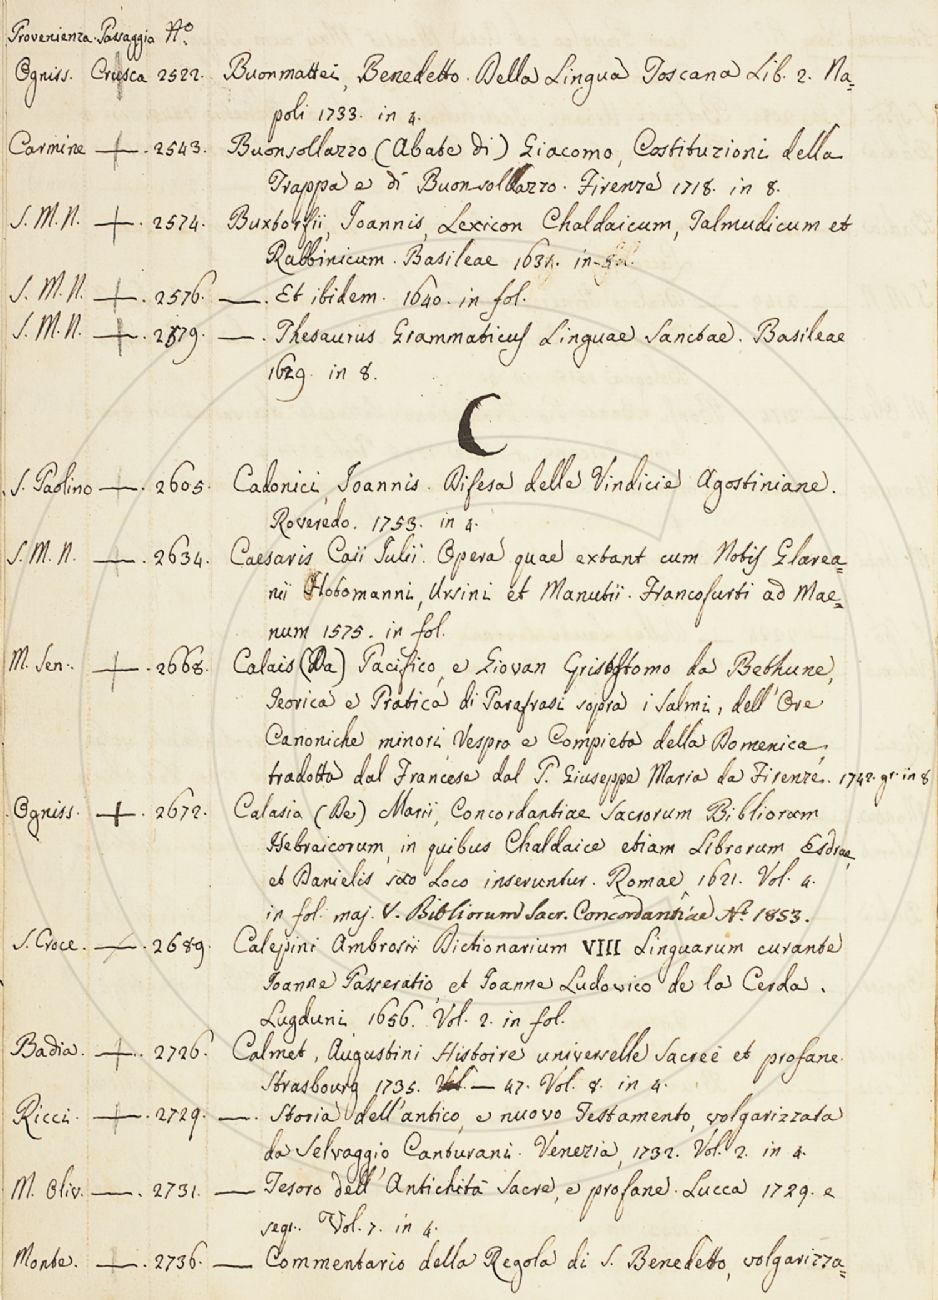 Provenienza. Passaggio Nº.
Ogniss. Crusca 2522. Buonmattei, Benedetto. Della Lingua Toscana Lib. 2. Na=
poli 1733. in 4.
Carmine + . 2543. Buonsollazzo (Abate di) Giacomo, Costituzioni della
Trappa e di Buonsollazzo. Firenze 1718. in 8.
S. M. N. + . 2574. Buxtorfii, Joannis, Lexicon Chaldaicum, Talmudicum et
Rabbinicum. Basileae in fol.
S. M. N. + . 2576. — . Et ibidem. 1640. in fol.
S. M. N. + . 2579. — . Thesaurus Grammaticus Linguae Sanctae. Basileae
1629. in 8.
C
S. Paolino — . 2605. Cadonici, Joannis. Difesa delle Vindicie Agostiniane.
Roveredo. 1753. in 4.
S. M. N. — . 2634. Caesaris Caii Julii. Opera quae extant cum Notis Glarea=
nii Hotomanni, Ursini et Manutii. Francofurti ad Mae=
num 1575. in fol.
M. Sen. + . 2668. Calais (Da) Pacifico, e Giovan Grisostomo da Bethune,
Teorica e Pratica di Parafrasi sopra i Salmi, dell' Ore
Canoniche minori, Vespro e Compieta della Domenica,
tradotta dal Francese dal P. Giuseppe Maria da Firenze. 1742. gr. in 8
Ogniss. + . 2672. Calasia (De) Marii, Concordantiae Sacrorum Bibliorum
Hebraicorum, in quibus Chaldaice etiam Librorum Esdrae,
et Danielis suo Loco inseruntur. Romae, 1621. Vol. 4.
in fol. maj. V. Bibliorum Sacr. Concordantiae Nº. 1853.
S. Croce. — . 2689. Calepini Ambrosii Dictionarium VIII Linguarum curante
Joanne Passeratio, et Joanne Ludovico de la Cerda.
Lugduni, 1656. Vol. 2. in fol.
Badia. + . 2726. Calmet, Augustini Histoire universelle Sacreè et profane.
Strasbourg 1735. — 47. Vol. 8. in 4.
Ricci + . 2729. — . Storia dell'antico, e nuovo Testamento, volgarizzata
da Selvaggio Canturani. Venezia, 1732. Vol. 2. in 4.
M. Oliv. — . 2731. — Tesoro dell' Antichità Sacre, e profane. Lucca 1729. e
segg. Vol. 7. in 4.
Monte. + . 2736. — Commentario della Regola di S. Benedetto, volgarizza=